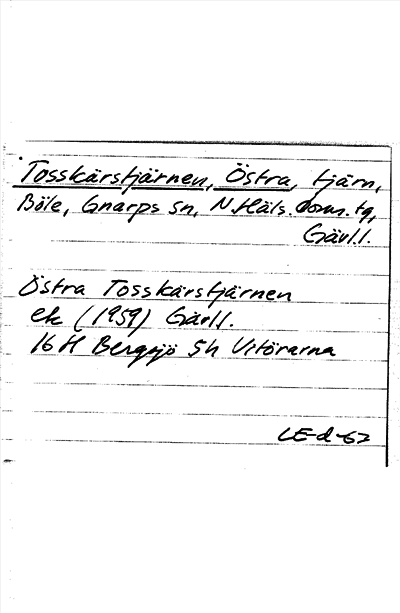 Tosskärstjärnen, Östra, tjärn,
Böle, Gnarps sn, N. Häls. doms. tg,
Gävl.l.
Östra Tosskärstjärnen
ek (1959) Gävl l.
16 H Bergsjö 5h Vitörarna
LE-d-62